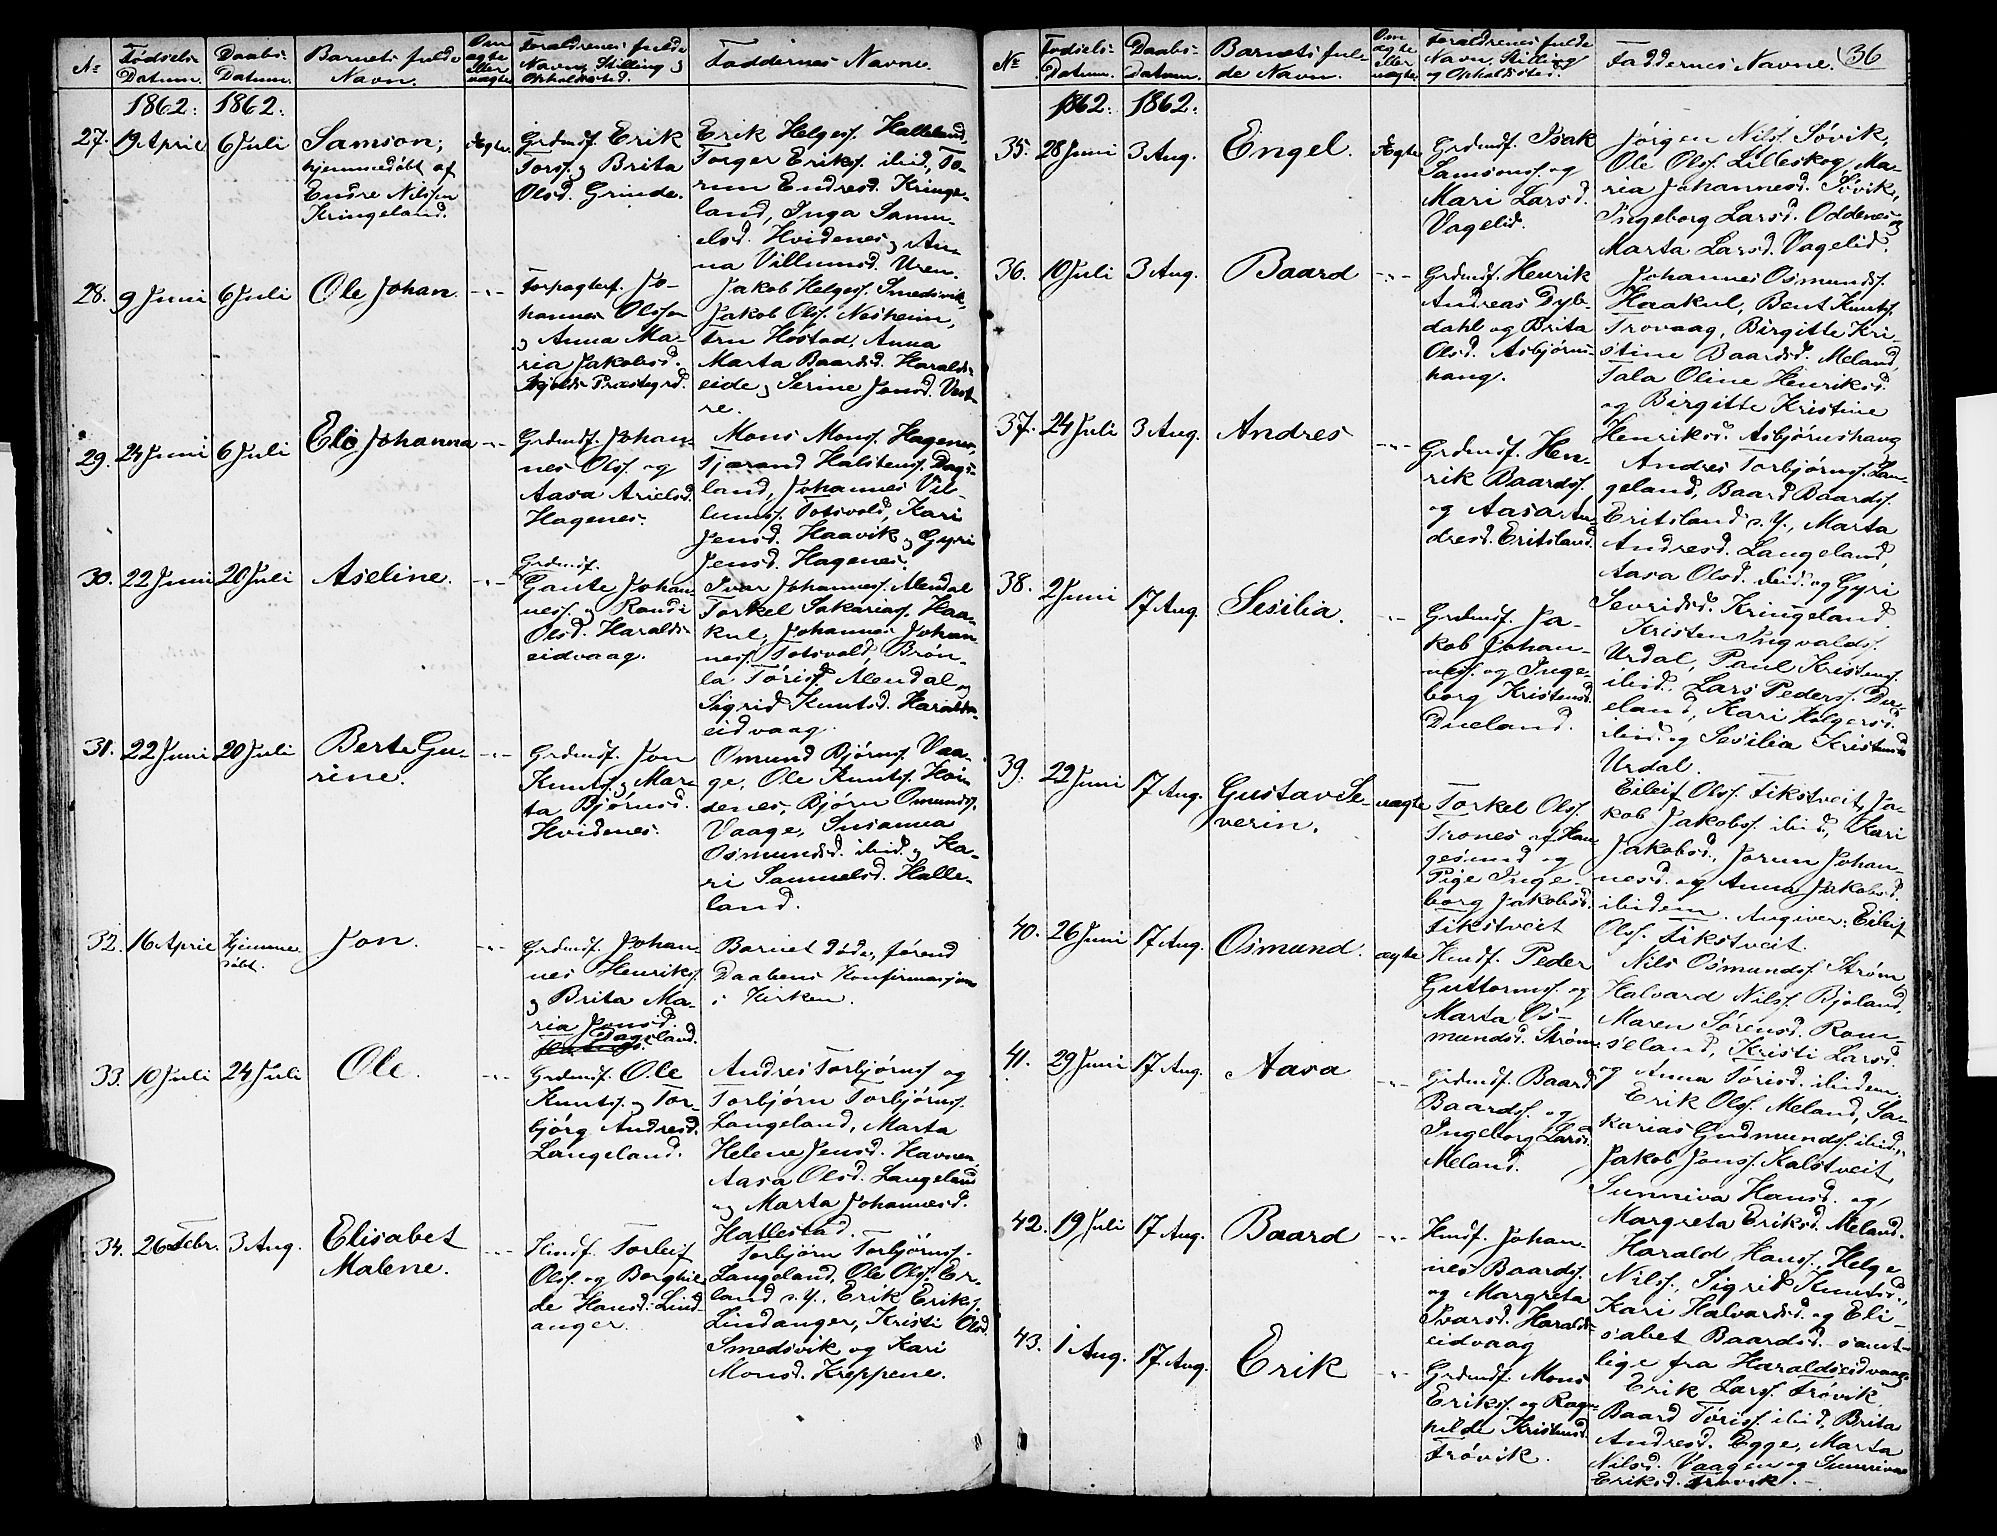 No
Fødsels-
Datum.
Daabs-
Datum.
Barnets fulde
Navn.
Om
ægte
eller
uægte
Forældrenes fulde
Navn, Stilling og
Opholdssted.
Faddernes Navne.
1862. 1862.
27. 19 April 6 Juli
Samson,
hjemmedøbt af
Endre Nilssen
Kringeland.
ægte.
Grdmdf. Erik
Torss. og Brita
Olsd. Grinde.
Erik Helgess. Halleland,
Torger Erikss. ibid., To-
runn Endresd. Kringe-
land, Inga Samu-
elsd. Hvidenes og An-
na Villumsd. Uren.
28. 9 Juni 6 Juli
Ole Johan.
-"-
Forpagterf. Jo-
hannes Olsson
og Anna Ma-
ria Jakobsd.
Skjolds Præstegrd.
Jakob Helgess. Smedsvik,
Jakob Olss. Nesheim,
Trn Hostad, Anna
Marta Baardsd. Haralds-
eide og Serine Jonsd. Vest-
re.
29. 24 Juni 6 Juli
Eli Johanna
-"-
Grdmdf. Johan-
nes Olss. og
Aasa Arielsd.
Hagenes.
Mons Monss. Hagenes,
Tjærand Halstenss. Dags-
land, Johannes Vil-
lumss. Totsvold, Kari
Jensd. Haavik og Gyri
Jensd. Hagenes.
30. 22 Juni 20 Juli
Aseline.
-"-
Grdmdf.
Gaute Johan-
ness. og Randi
Olsd. Haralds-
eidvaag.
Ivar Johanness. Alendal
Torkel Sakariass. Haa-
kul, Johannes Johan-
ness. Totsvold, Brøn-
la Torisd. Alendal og
Sigrid Knutsd. Haralds-
eidvaag.
31. 22 Juni 20 Juli
Berta Gu-
rine.
-"-
Grdmdf. Jon
Knutss. og Mar-
ta Bjørnsd.
Hvidenes.
Omund Bjørnss. Vaa-
ge, Ole Knutss. Hvin
denes, Bjørn Omundss.
Vaage, Susanna
Osmundsd. ibid. og Ka-
ri Samuelsd. Halle-
land.
32. 16 April Hjemme-
døbt.
Jon.
-"-
Grdmdf. Johan-
nes Henrikss.
og Brita Ma-
ria Jonsd.
Dagsland.
Barnet døde, førend
Daabens Konfirmasjon
i Kirken.
33. 10 Juli 24 Juli
Ole.
-"-
Grdmdf. Ole
Knutss. og Tor-
bjørg Andresd.
Langeland.
Andres Torbjørnss. og
Torbjørn Torbjørnss.
Langeland, Marta
Helene Jensd. Havnen,
Aasa Olsd. Langeland
og Marta Johannesd.
Hallestad.
34. 26 Febr. 3 Aug.
Elisabet
Malene.
-"-
Hmdf. Torleif
Olss. og Borghil-
de Hansd. Lind-
anger.
Torbjørn Torbjørnss.
Langeland, Ole Olss. Er-
land s.Y., Erik Erikss.
Lindanger, Kristi Olsd.
Smedsvik og Kari
Monsd. Kreppene.
No
Fødsels-
Datum.
Daabs-
Datum.
Barnets ful-
de Navn.
Om
ægte
eller
uægte
Forældrenes fulde
Navn, Stilling
og Opholdssted.
Faddernes Navne.
36
1862. 1862.
35. 28 Juni 3 Aug.
Engel.
ægte
Grdmdf. Isak
Samsonss. og
Mari Larsd.
Vagelid.
Jørgen Nilss. Søvik,
Ole Olss. Lilleskog, Ma-
ria Johannesd. Søvik,
Ingeborg Larsd. Oddenes og
Marta Larsd. Vagelid.
36. 10 Juli 3 Aug.
Baard
-"-
Grdmdf. Henrik
Andreas Dyb-
dahl og Brita
Olsd. Asbjørns-
haug.
Johannes Osmundss.
Haakul, Bent Knutss.
Trovaag, Birgitte Kri-
stine Baardsd. Meland,
Tala Oline Henriksd.
og Birgitte Kristine
Henriksd. Asbjørnshaug
37. 24 Juli 3 Aug.
Andres
-"-
Grdmdf. Hen-
rik Baardss.
og Aasa An-
dresd. Eritsland.
Andres Torbjørnss. Lan-
geland, Baard Baardss.
Eritsland s.Y., Marta
Andresd. Langeland,
Aasa Olsd. ibid. og Gyri
Sevridsd. Kringeland
38. 2 Juni 17 Aug.
Sesilia.
-"-
Grdmdf. Ja-
kob Johan-
ness. og Inge-
borg Kristensd.
Dueland.
Kristen Ingvaldss.
Urdal, Paul Kristenss.
ibid., Lars Pederss. Du-
eland, Kari Helgesd.
ibid. og Sesilia Kristensd.
Urdal.
39. 22 Juni 17 Aug.
Gustav Se-
verin.
uægte
Torkel Olss.
Trones af Hau-
gesund og
Pige Inge-
borg Jakobsd.
Fikstveit
Eileif Olss. Fikstveit, Ja-
kob Jakobss. ibid., Kari
Jakobsd., Jorun Johan-
nesd. og Anna Jakobsd.
ibidem. Angiver: Eileif
Olss. Fikstveit.
40. 26 Juni 17 Aug.
Osmund.
ægte
Hmdf. Peder
Guttormss. og
Marta Os-
mundsd. Strøm
Nils Osmundss. Strøm,
Halvard Nilss. Bjoland,
Maren Sørensd. Rom-
seland, Kristi Larsd.
og Anna Torisd. ibidem.
41. 29 Juni 17 Aug.
Aasa
-"-
Grdmdf. Baard
Baardss. og
Ingeborg Larsd.
Meland.
Erik Olss. Meland, Sa-
karias Gudmundss. ibid.,
Jakob Jonss. Kalstveit
Sunniva Hansd. og
Margreta Eriksd. Meland.
42. 19 Juli 17 Aug.
Baard
-"-
Hmdf. Johan-
nes Baardss.
og Margreta
Ivarsd. Haralds-
eidvaag
Harald Hanss., Helge
Nilss., Sigrid Knutsd.,
Kari Halvardsd. og Eli-
sabet Baardsd. samt-
lige fra Haraldseidvaag
43. 1 Aug. 17 Aug.
Erik
-"-
Grdmdf. Mons
Erikss. og Ragn-
hilde Kristensd.
Frøvik.
Erik Larss. Frøvik,
Baard Toriss. ibid., Brita
Andresd. Egge, Marta
Nilsd. Vaagen og Sunniva
Eriksd. Frøvik.